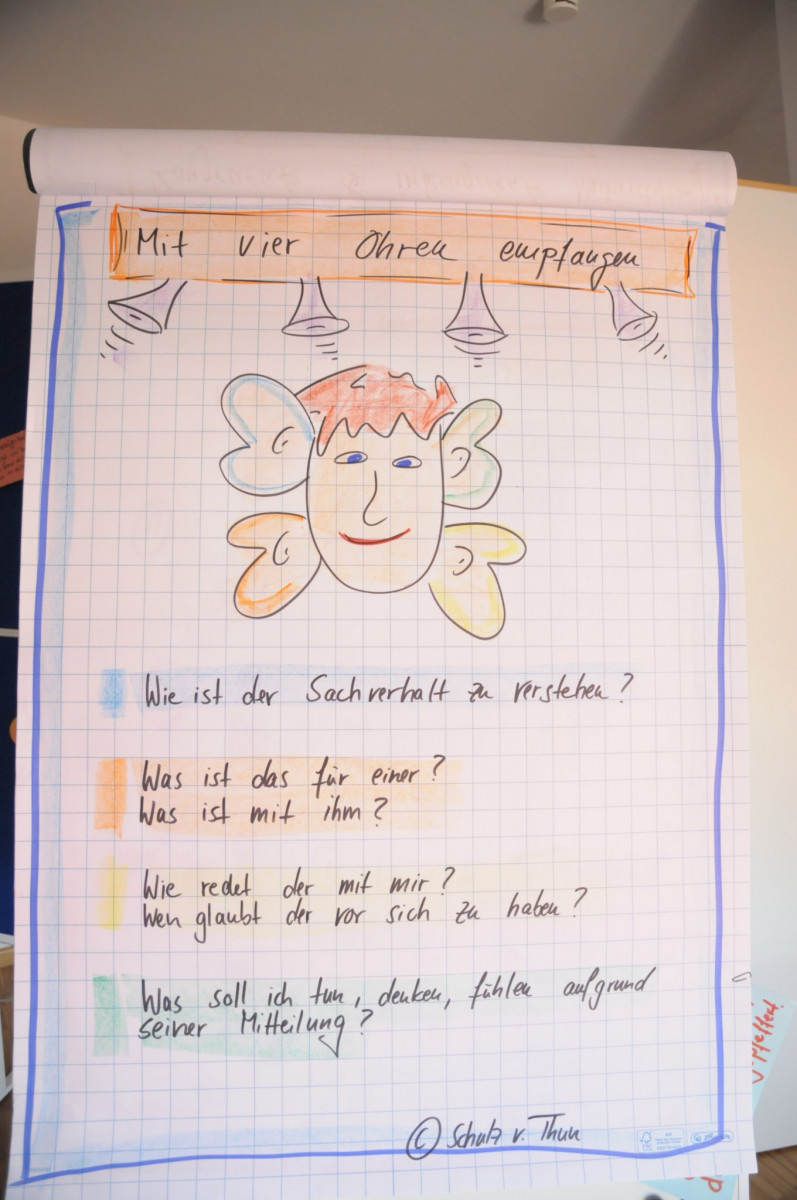 Mit vier Ohren empfangen
Wie ist der Sachverhalt zu verstehen?
Was ist das für einer?
Was ist mit ihm?
Wie redet der mit mir?
Wen glaubt der vor sich zu haben?
Was soll ich tun, denken, fühlen aufgrund
seiner Mitteilung?
© Schulz v. Thun